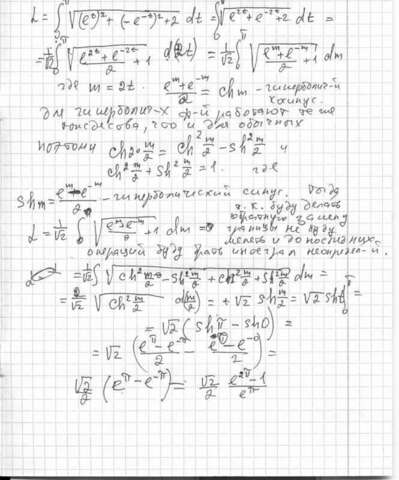 L = ∫₀^π √((e^t)² + (-e^-t)² + 2) dt = ∫₀^π √(e^2t + e^-2t + 2) dt =
= 1/√2 ∫₀^π √((e^2t + e^-2t)/2 + 1) d(2t) = 1/√2 ∫ √((e^m + e^-m)/2 + 1) dm
где m = 2t. (e^m + e^-m)/2 = ch m - гиперболич-й
косинус.
Для гиперболич-х ф-й работают те же
тождества, что и для обычных
поэтому ch 2 m/2 = ch² m/2 - sh² m/2 и
ch² m/2 + sh² m/2 = 1. где
sh m = (e^m - e^-m)/2 - гиперболический синус. Тогда
т.к. буду делать
обратную замену
L = 1/√2 ∫ √((e^m e^-m)/2 + 1) dm = границы не буду
менять и до последних
операций буду брать интеграл неопределен-й.
= 1/√2 ∫ √(ch² m/2 - sh² m/2 + ch² m/2 + sh² m/2) dm =
= 2/√2 √(ch² m/2) d(m/2) = + √2 sh m/2 = √2 sh t |₀^π =
= √2 (sh π - sh 0) =
= √2 ((e^π - e^-π)/2 - (e^0 - e^-0)/2) =
√2/2 (e^π - e^-π) = √2/2 (e^2π - 1)/e^π